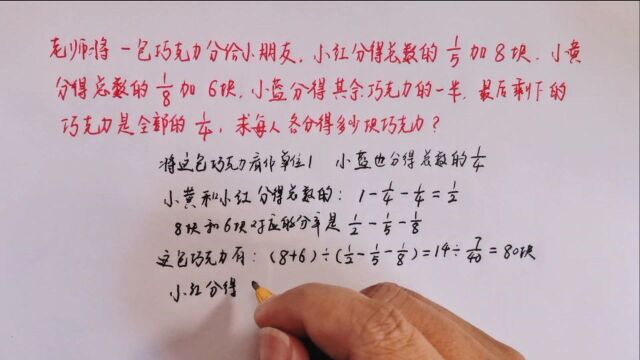 老师将一包巧克力分给小朋友，小红分得总数的1/5加8块，小黄
分得总数的1/8加6块，小蓝分得其余巧克力的一半，最后剩下的
巧克力是全部的1/4，求每人各分得多少块巧克力？
将这包巧克力看作单位1 小蓝也分得总数的1/4
小黄和小红分得总数的：1-1/4-1/4=1/2
8块和6块对应的分率是1/2-1/5-1/8
这包巧克力有：(8+6)÷(1/2-1/5-1/8)=14÷7/40=80块
小红分得